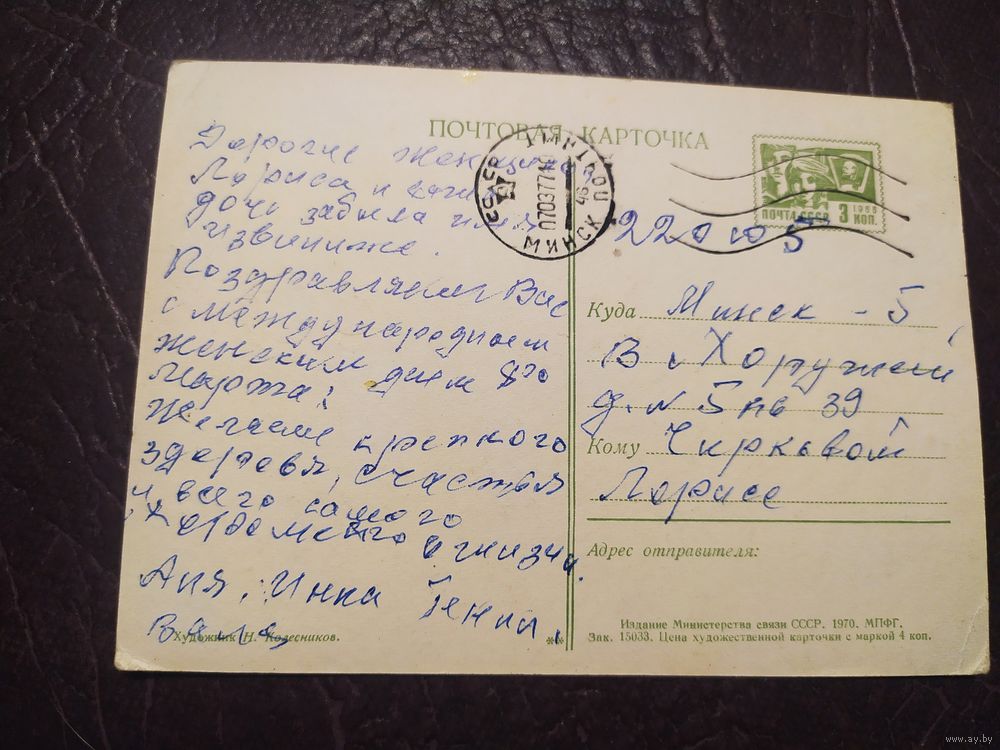 ПОЧТОВАЯ КАРТОЧКА
Дорогие женщины
Лориса и
дочь забыла имя
извиниже.
Поздравляем Вас
с международнем
женским днем 8го
Маржа!
Желаем крепкого
здоровя, счастья
и всего самого
хорошего в жизни.
Аня, Инна Гена,
Валя,
Художник Н. Колесников.
**
ПОЧТАМТ
МИНСК
070377
ПОЧТА СССР 3 КОП.
1966
220005
Куда Минск - 5,
В. Хоружей
д. N 5 кв 39
Кому Чирковой
Лорисе
Адрес отправителя:
Издание Министерства связи СССР. 1970. МПФГ.
Зак. 15033. Цена художественной карточки с маркой 4 коп.
www.ay.by